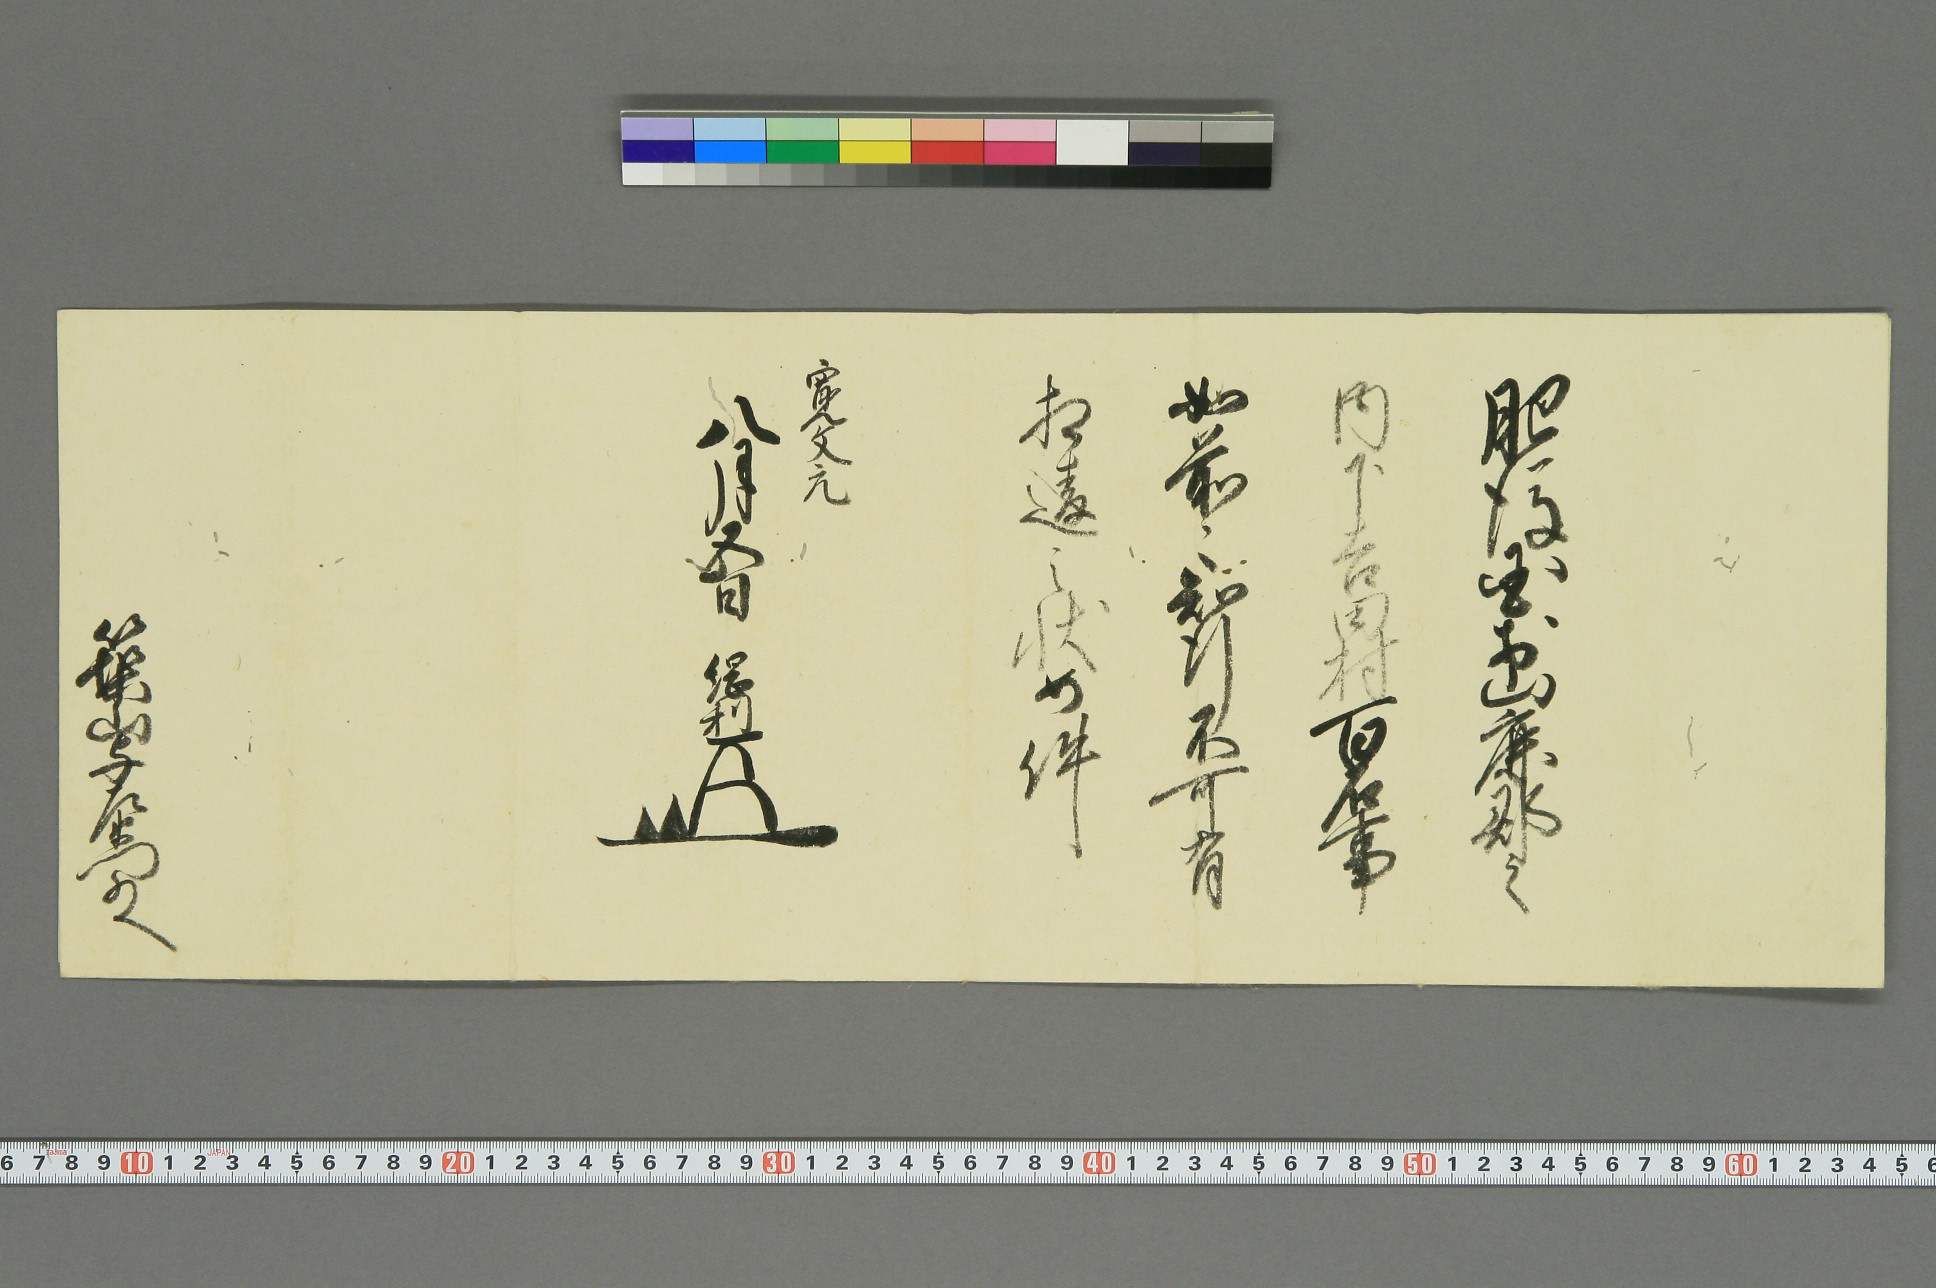 肥後国山鹿郡之
内下吉田村百
如前々知行不可有
相違之状如件
寛文元
八月五日 綱利
築山左衛門
6 7 8 9 10 1 2 3 4 5 6 7 8 9 20 1 2 3 4 5 6 7 8 9 30 1 2 3 4 5 6 7 8 9 40 1 2 3 4 5 6 7 8 9 50 1 2 3 4 5 6 7 8 9 60 1 2 3 4 5 6
JAPAN